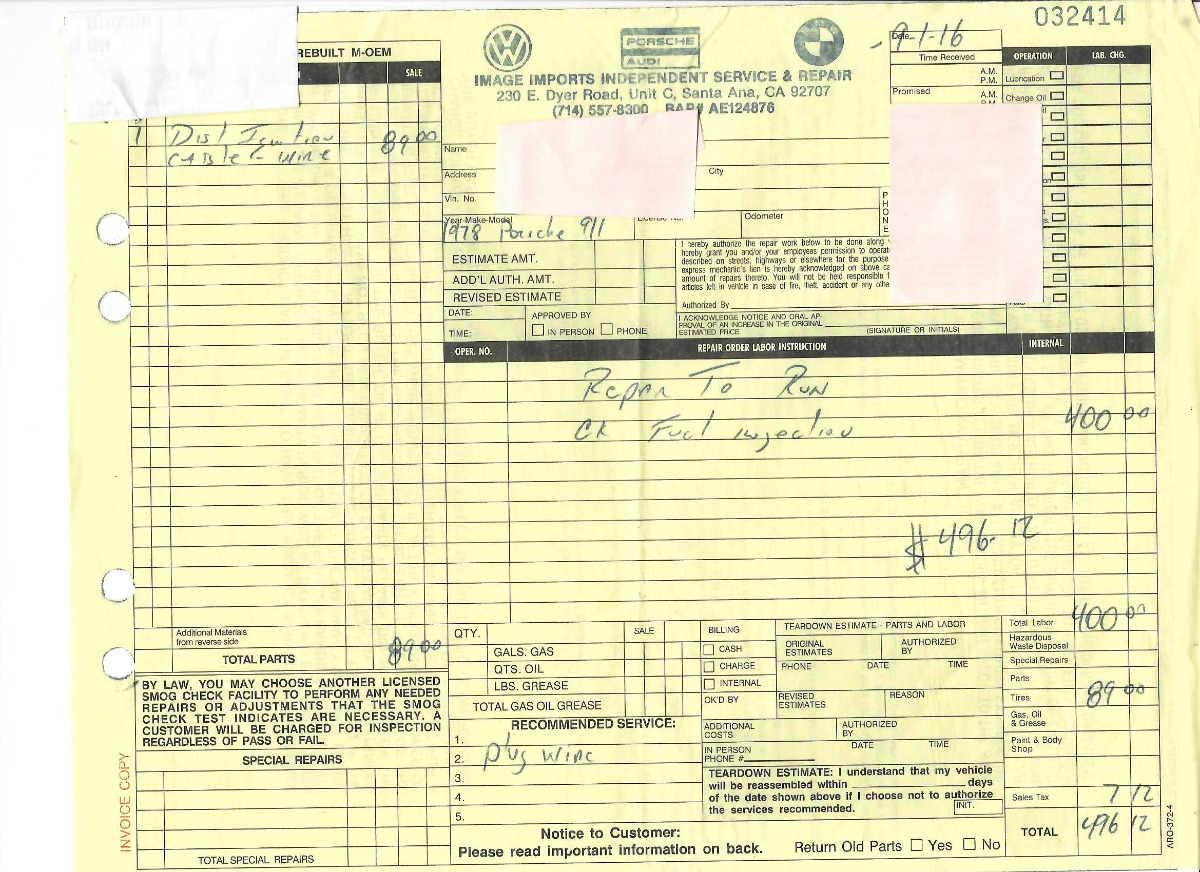 032414
REBUILT M-OEM
SALE
1 Dist Ignition 89 00
CABle & Wire
PORSCHE
AUDI
IMAGE IMPORTS INDEPENDENT SERVICE & REPAIR
230 E. Dyer Road, Unit C, Santa Ana, CA 92707
(714) 557-8300 BAR# AE124876
Date 9-1-16
Time Received
A.M.
P.M.
Promised
A.M.
OPERATION LAB. CHG.
Lubrication
Change Oil
Name
Address
City
Vin. No.
Year-Make-Model
License No.
Odometer
PHONE
1978 Porsche 911
ESTIMATE AMT.
ADD'L AUTH. AMT.
REVISED ESTIMATE
DATE:
TIME:
APPROVED BY
IN PERSON PHONE
I hereby authorize the repair work below to be done along
hereby grant you and/or your employees permission to operat
described on streets, highways or elsewhere for the purpose
express mechanic's lien is hereby acknowledged on above ca
amount of repairs thereto. You will not be held responsible f
articles left in vehicle in case of fire, theft, accident or any othe
Authorized By
I ACKNOWLEDGE NOTICE AND ORAL AP-
PROVAL OF AN INCREASE IN THE ORIGINAL
ESTIMATED PRICE.
(SIGNATURE OR INITIALS)
OPER. NO. REPAIR ORDER LABOR INSTRUCTION INTERNAL
Repair To Run
CK Fuel injection 400 00
$496.12
Additional Materials
from reverse side
TOTAL PARTS 89 00
BY LAW, YOU MAY CHOOSE ANOTHER LICENSED
SMOG CHECK FACILITY TO PERFORM ANY NEEDED
REPAIRS OR ADJUSTMENTS THAT THE SMOG
CHECK TEST INDICATES ARE NECESSARY. A
CUSTOMER WILL BE CHARGED FOR INSPECTION
REGARDLESS OF PASS OR FAIL.
SPECIAL REPAIRS
TOTAL SPECIAL REPAIRS
INVOICE COPY
QTY. SALE
GALS. GAS
QTS. OIL
LBS. GREASE
TOTAL GAS OIL GREASE
RECOMMENDED SERVICE:
1.
2. plug wire
3.
4.
5.
BILLING
CASH
CHARGE
INTERNAL
OK'D BY
TEARDOWN ESTIMATE - PARTS AND LABOR
ORIGINAL
ESTIMATES
AUTHORIZED
BY
PHONE DATE TIME
REVISED
ESTIMATES
REASON
ADDITIONAL
COSTS
AUTHORIZED
BY
DATE TIME
IN PERSON
PHONE #
TEARDOWN ESTIMATE: I understand that my vehicle
will be reassembled within days
of the date shown above if I choose not to authorize
the services recommended.
INIT.
Notice to Customer:
Please read important information on back.
Return Old Parts Yes No
Total Labor 400 00
Hazardous
Waste Disposal
Special Repairs
Parts 89 00
Tires
Gas, Oil
& Grease
Paint & Body
Shop
Sales Tax 7 12
TOTAL 496 12
ARO-372-4